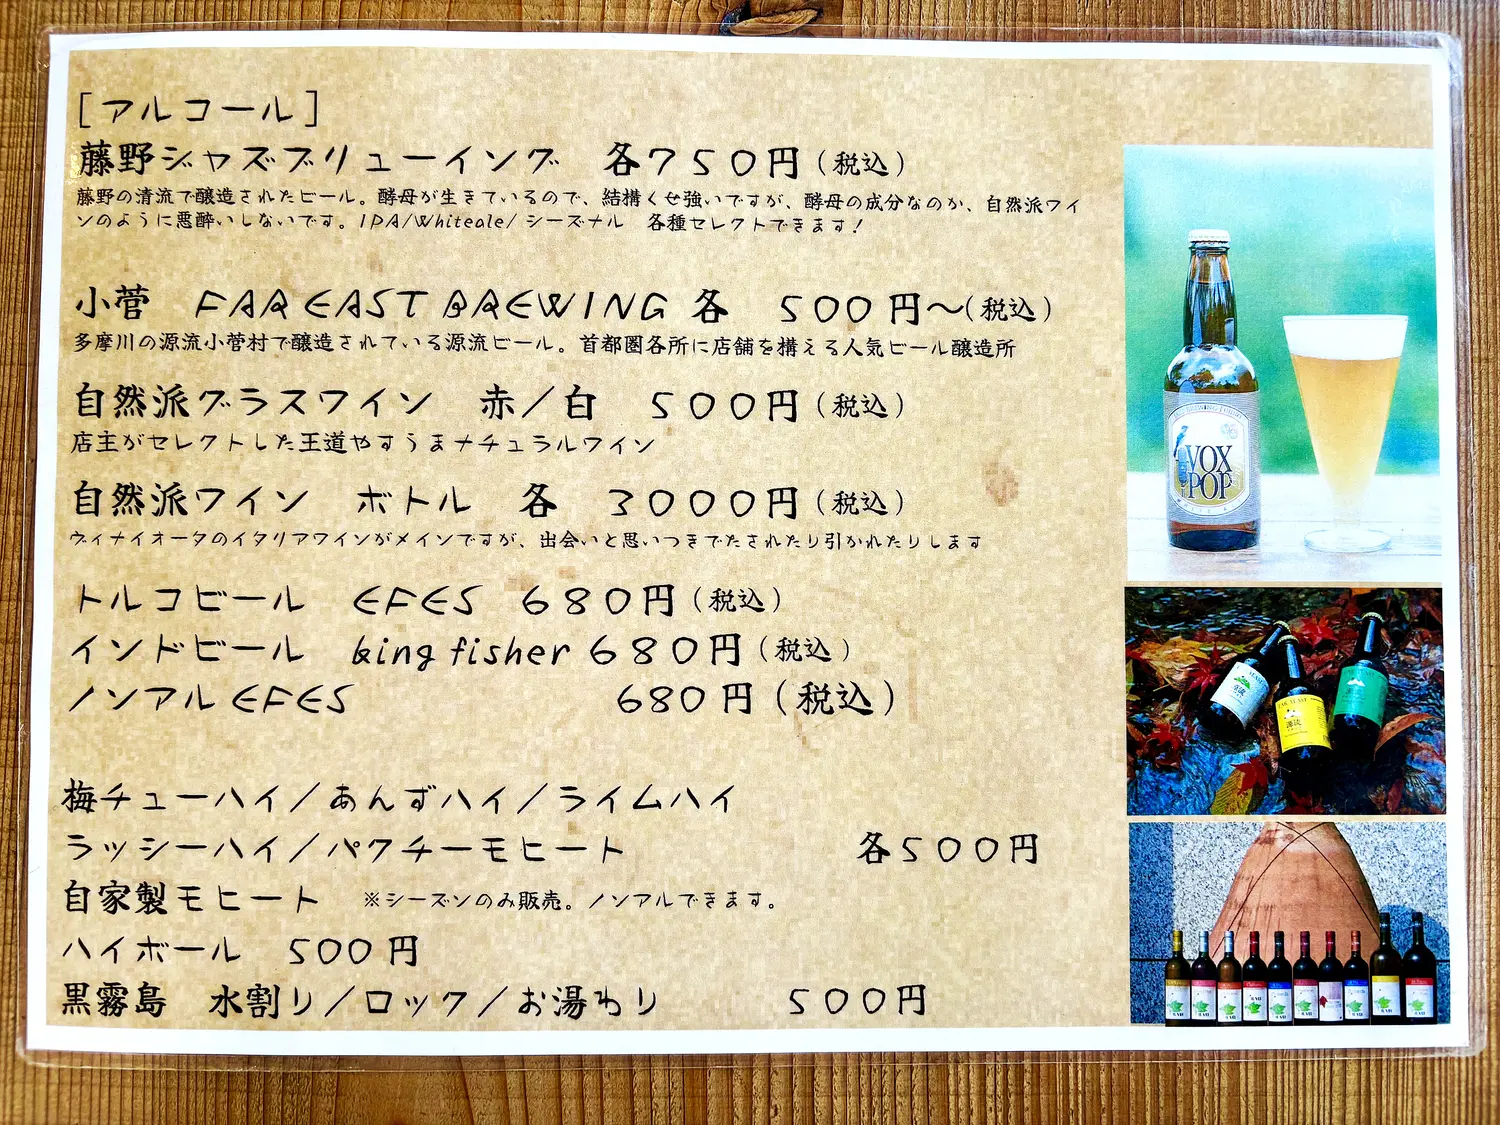 [アルコール]
藤野ジャズブリューイング　各750円(税込)
藤野の清流で醸造されたビール。酵母が生きているので、結構くせ強いですが、酵母の成分なのか、自然派ワイ
ンのように悪酔いしないです。IPA/Whiteale/ シーズナル　各種セレクトできます！
小菅　FAR EAST BREWING 各　500円～(税込)
多摩川の源流小菅村で醸造されている源流ビール。首都圏各所に店舗を構える人気ビール醸造所
自然派グラスワイン　赤／白　500円(税込)
店主がセレクトした王道やすうまナチュラルワイン
自然派ワイン　ボトル　各　3000円(税込)
ヴィナイオータのイタリアワインがメインですが、出会いと思いつきでたされたり引かれたりします
トルコビール　EFES　680円(税込)
インドビール　king fisher 680円(税込)
ノンアル EFES　680円(税込)
梅チューハイ／あんずハイ／ライムハイ
ラッシーハイ／パクチーモヒート　各500円
自家製モヒート　※シーズンのみ販売。ノンアルできます。
ハイボール　500円
黒霧島　水割り／ロック／お湯わり　500円
VOX
POP